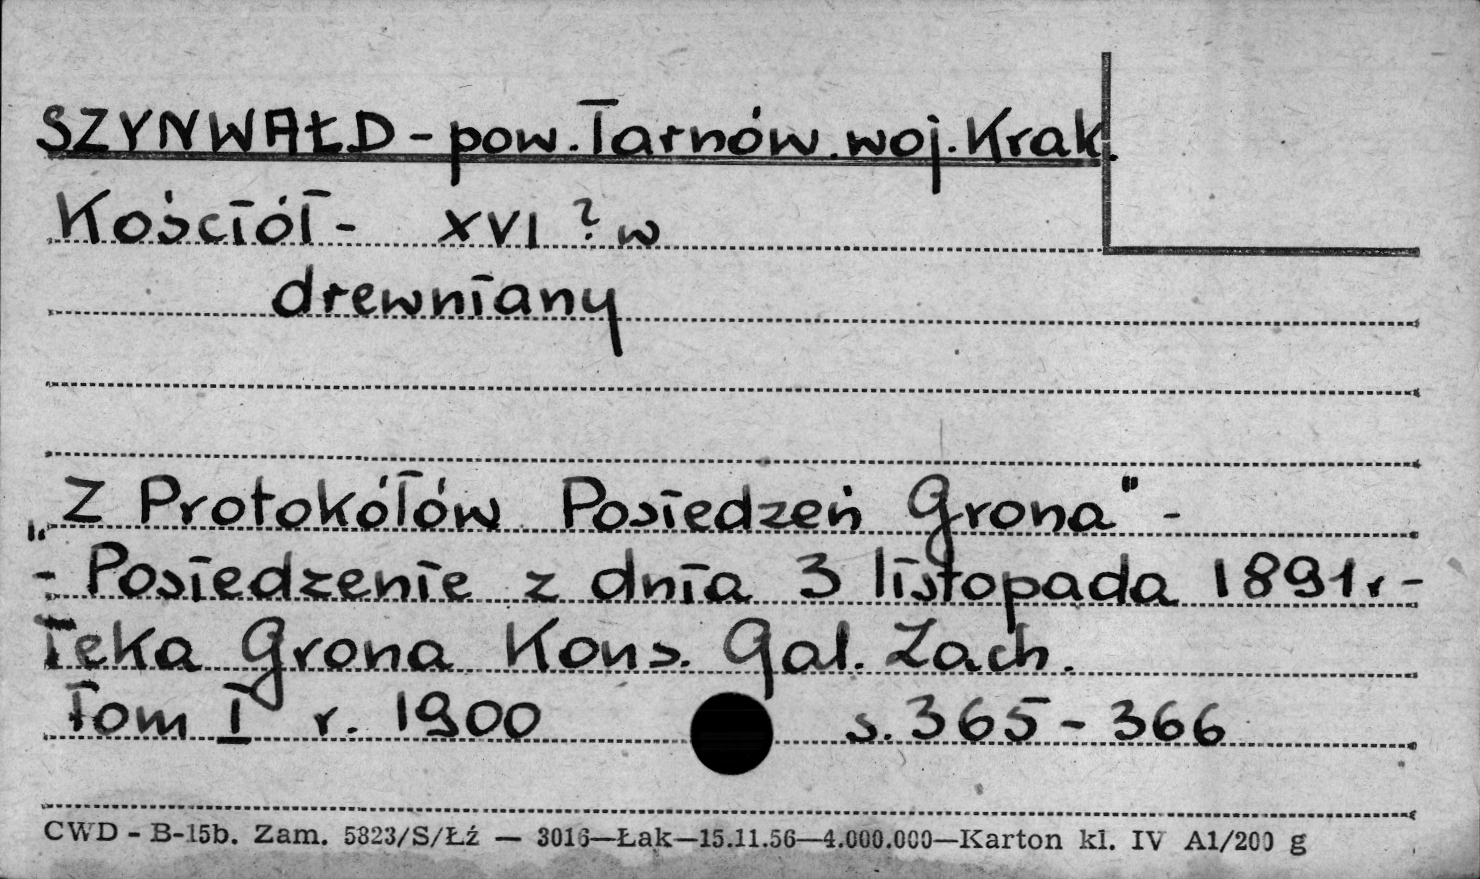 SZYNWAŁD - pow. Tarnów. woj. Krak.
Kościół - XVI ? w
drewniany
„Z Protokółów Posiedzeń Grona" -
- Posiedzenie z dnia 3 listopada 1891 r -
Teka Grona Kons. Gal. Zach.
Tom I r. 1900 s. 365 - 366
CWD - B-15b. Zam. 5823/S/Łź — 3016—Łak—15.11.56—4.000.000—Karton kl. IV A1/200 g